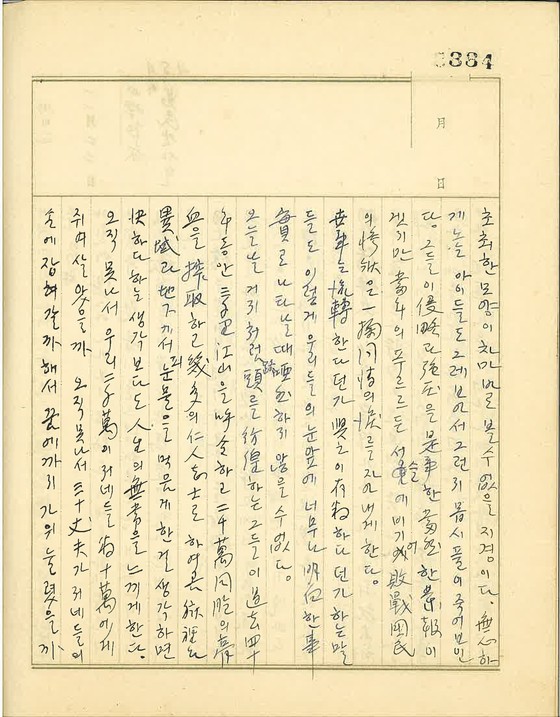 3384
月
日
초최한 모양이 차마 바로 볼 수 없을 지경이다. 無心하
게 노는 아이들도 그레 보아서 그런지 몹시 풀이 죽어 보인
다. 그들이 侵略과 强压을 是事한 當然한 果報이
겠지만 當年의 푸르르든 서슬에 비기여 敗戰國民
의 慘狀은 一掬同情의 淚를 자아내게 한다.
世事는 流轉한다던가 興亡이 有數하다던가 하는 말
들도 이렇게 우리들의 눈앞에 너무나 明白한 事
實로 나타날 때 하지 않을 수 없다.
오늘날 거지처럼 街頭를 彷徨하는 그들이 過去 四十
年동안 三千里江山을 呼令하고 二千萬同胞의 膏
血을 搾取하고 幾多의 仁人志士로 하여금
異域과 地下에서 피눈물을 먹음게 한 걸 생각하면
快하다 하는 생각보다도 人生의 無常을 느끼게 한다.
오직 못나서 우리 二千萬이 저네들 八十萬에게
쥐여 살았을까 오직 못나서 三十丈夫가 저네들의
손에 잡혀갈까 해서 꿈에까지 가위 눌렸을까